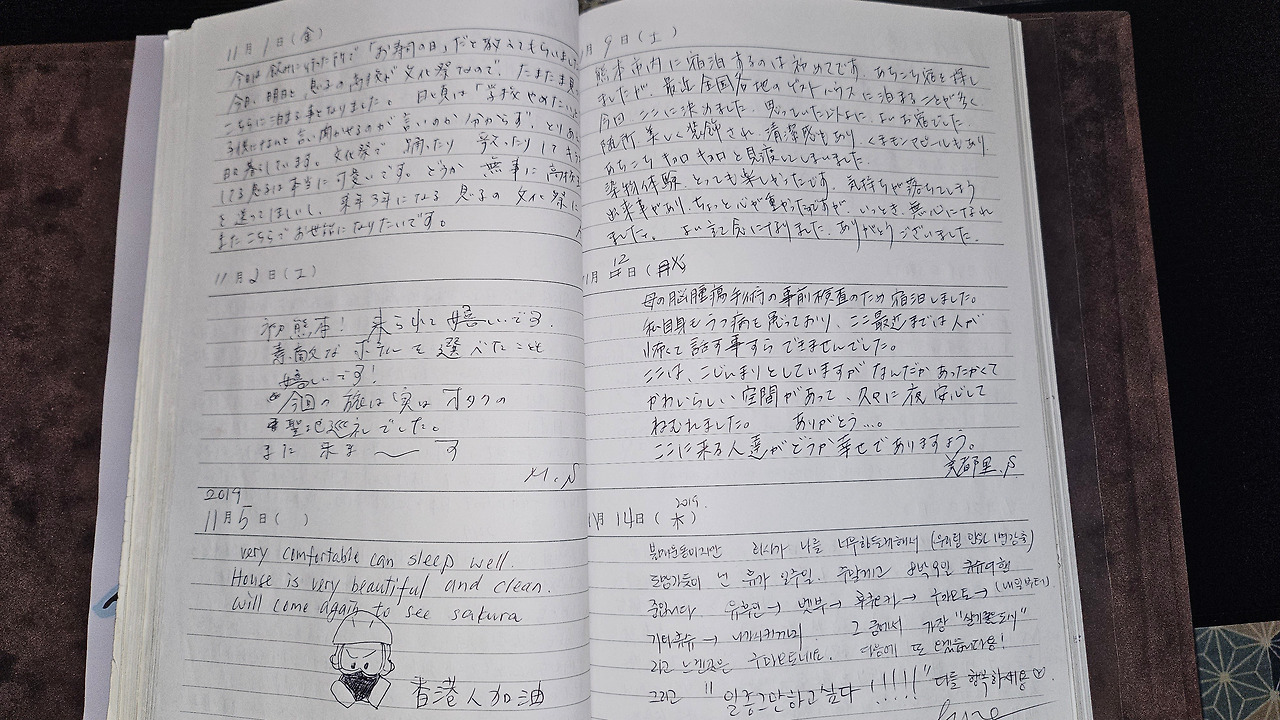 11月1日(金)
今日は 飲みに行った所で「お寿司の日」だと教えてもらいまし
今日、明日と、息子の高校が文化祭なので、たまたま
こちらに泊まる事となりました。日頃は「学校やめたい
子供になんと言い聞かせるのが言いのか分からず、とりあ
日々暮らしています。文化祭で 踊ったり 歌ったりして
してる息子は本当に可愛いです。どうか 無事に高校
を送ってほしいし、来年3年になる 息子の文化祭に
またこちらでお世話になりたいです。
11月2日(土)
初熊本! 来られて嬉しいです.
素敵なホテルを選べたことも
嬉しいです!
今回の旅は実はオタクの
聖地巡礼でした。
また 来ま〜す
M.S
2019
11月5日( )
very comfortable can sleep well.
House is very beautiful and clean.
will come again to see sakura
香港人加油
月9日(土)
熊本市内に宿泊するのは初めてです。あちこち宿を探し
ましたが、最近全国各地のゲストハウスに泊まることが多く
今回、ここに決めました。思っていた以上に、よいお宿でした。
随所美しく装飾され、清潔感もあり、くまモンビールもあり
あちこちキョロキョロと見渡してしまいました。
染物体験、とっても楽しかったです。気持ちが落ちてしまう
出来事があり、ちょっと心が重かったですが、いっとき、無心になれ
ました。よい記念になりました。ありがとうございました。
月12日(火)
母の脳腫瘍手術の事前検査のため宿泊しました。
私自身もうつ病を患っており、ここ最近までは人が
怖くて話す事すらできませんでした。
ここは、こじんまりとしていますがなんだかあったかくて
かわいらしい空間があって、久々に夜安心して
ねむれました。 ありがとう…。
ここに来る人達がどうか幸せでありますよう。
2019.
11月14日(木)
중입니다 유후인→벳부→후쿠오카→구마모토→(내일부터)
기타큐슈→나가사키까지 그 중에서 가장 "살기좋은도시"
라고 느낀곳은 구마모토네요. 다음에 또 오겠습니다용!
그리고 "일 좀 그만하고싶다!!!!!" 다들 행복하세용♡.